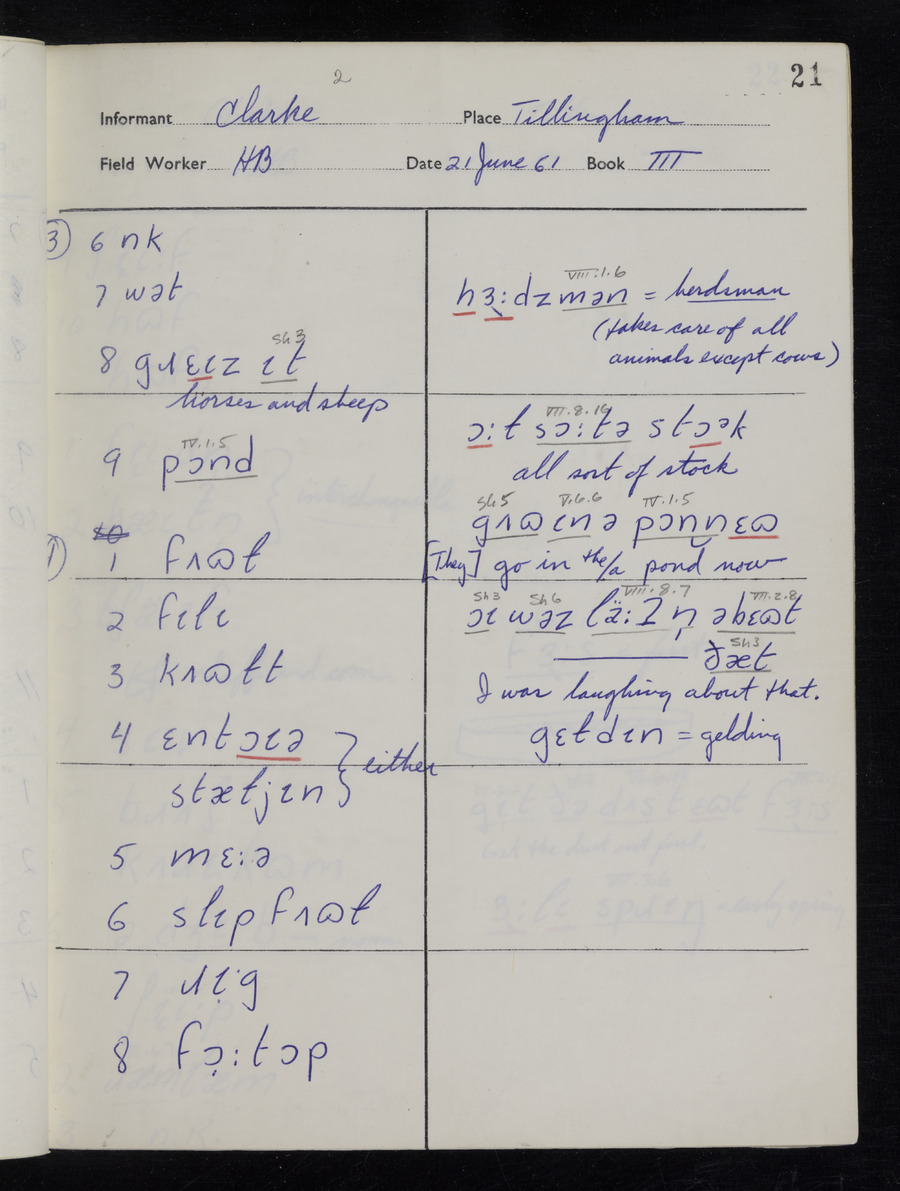 2
21
Informant Clarke Place Tillingham
Field Worker HB Date 21 June 61 Book III
③ 6 nk
7 wət
8 gɹɛɩz ɩt
Sh 3
horses and sheep
9 pɔnd
IV.1.5
① 1 fʌɷl
2 fɩlɩ
3 kʌɷlt
4 ɛntɔɩə } either
stætjɩn
5 mɛ:ə
6 slɩpfʌɷl
7 ɹɩg
8 fɔ̣:tɔp
VIII.1.6
hɜ:dzmən = herdsman
(takes care of all
animals except cows)
VII.8.14
ɔ:l sɔ:tə stɔək
all sort of stock
Sh 5 V.6.6 IV.1.5
gʌɷ ɩnə pɔnnɛɷ
[They] go in the/a pond now
Sh 3 Sh 6 VIII.8.7 VII.2.8
ɔɩ wəz lä:ɪn əbɛɷt
Sh 3
ðæt
I was laughing about that.
gɛldɩn = gelding